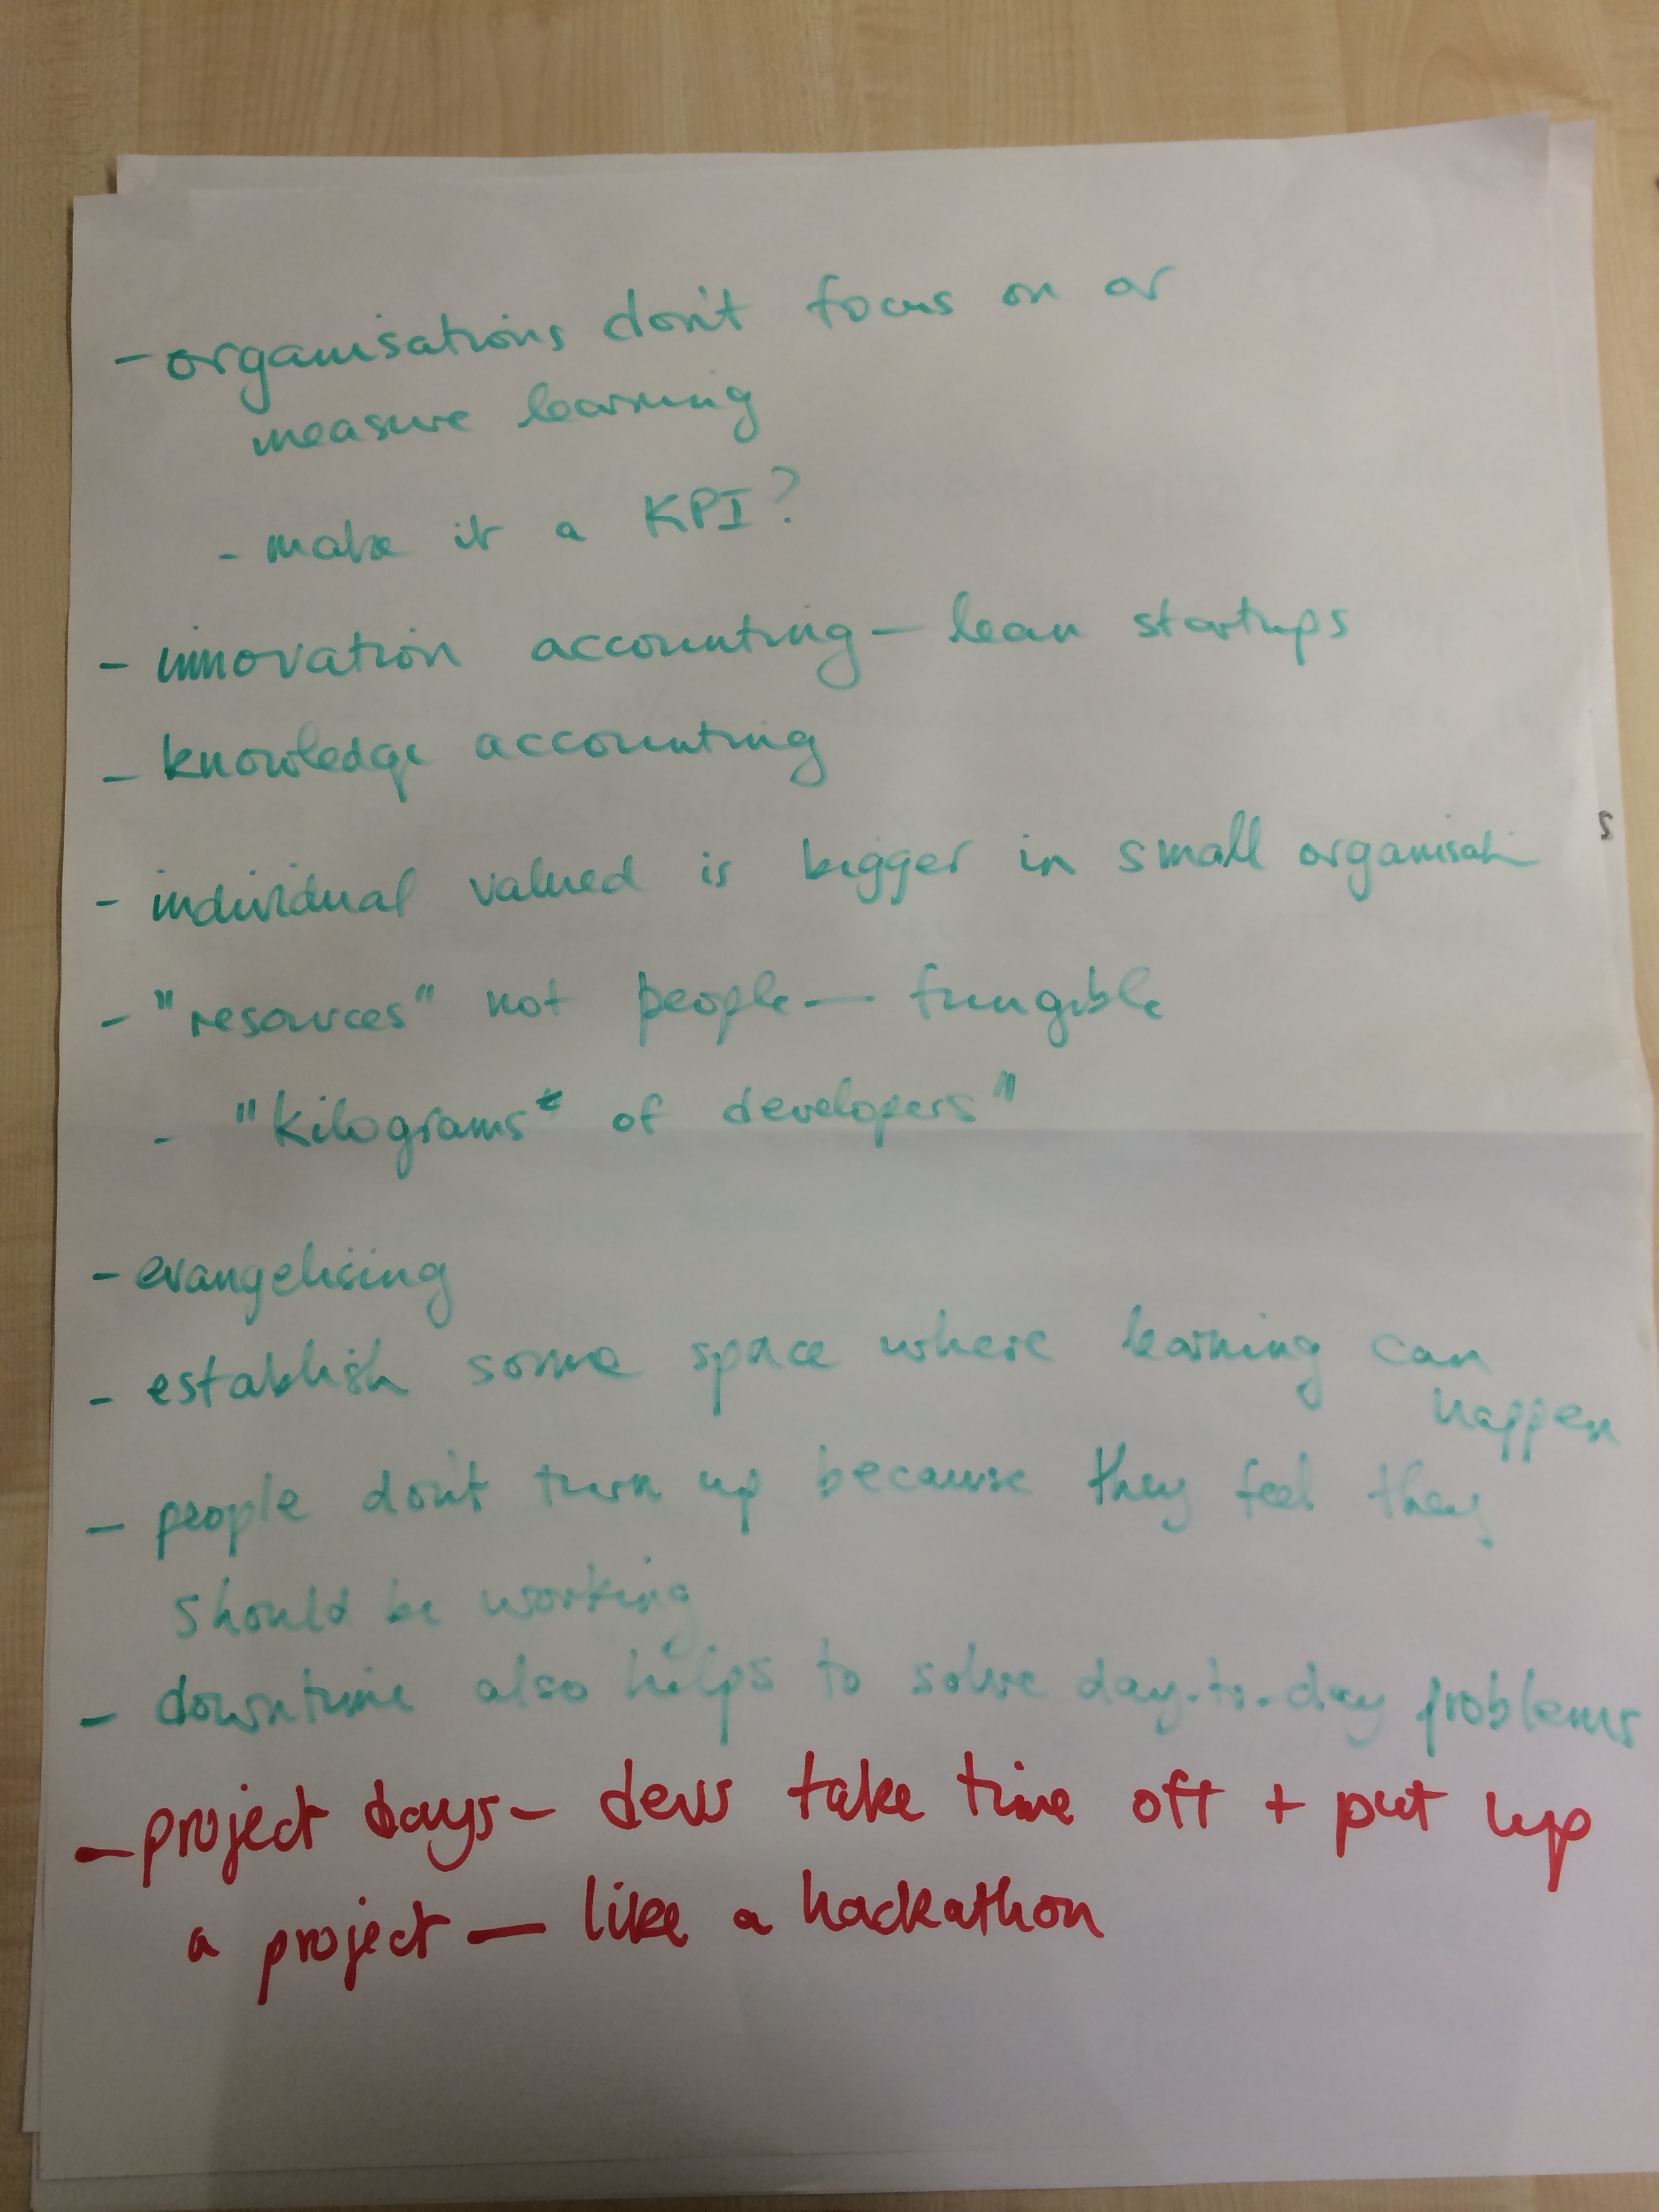 - organisations don't focus on or
measure learning
- make it a KPI?
- innovation accounting - lean startups
- knowledge accounting
- individual valued is bigger in small organisati
s
- "resources" not people - fungible
- "kilograms* of developers"
- evangelising
- establish some space where learning can
happen
- people don't turn up because they feel they
should be working
- downtime also helps to solve day-to-day problems
- project days - devs take time off + put up
a project - like a hackathon